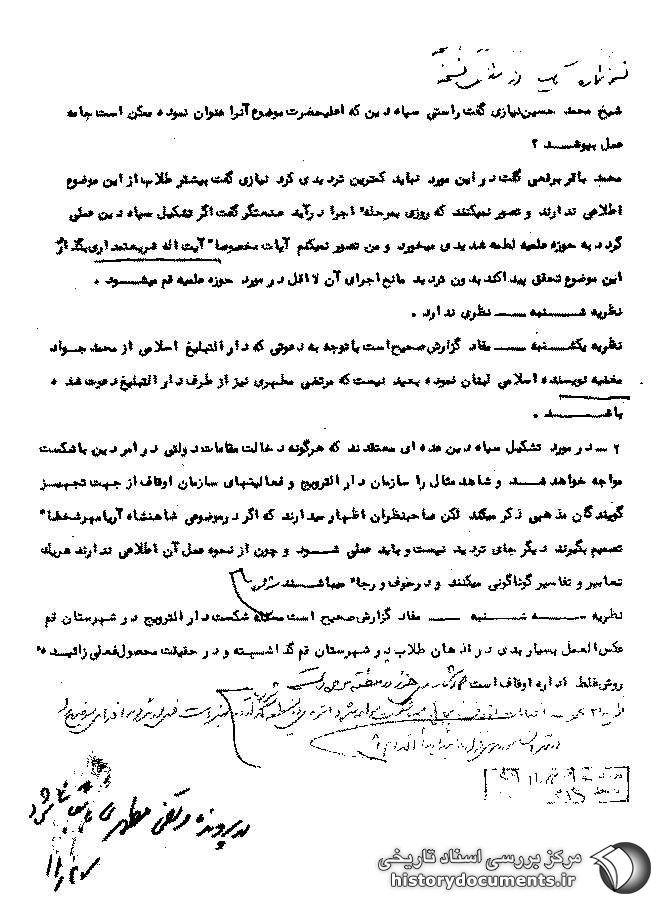 شیخ محمد حسین نیازی گفت راستی سپاه دین که اعلیحضرت موضوع آنرا عنوان نموده ممکن است جامه
عمل بپوشد ؟
محمد باقر برقعی گفت در این مورد نباید کمترین تردیدی کرد نیازی گفت بیشتر طلاب از این موضوع
اطلاعی ندارند و تصور نمیکنند که روزی بمرحله اجرا درآید صنعتگر گفت اگر تشکیل سپاه دین عملی
گردد به حوزه علمیه لطمه شدیدی میخورد و من تصور نمیکنم آیات مخصوصا" آیت اله شریعتمداری بگذارد
این موضوع تحقق پیدا کند بدون تردید مانع اجرای آن لااقل در مورد حوزه علمیه قم میشود .
نظریه شنبه ـــ نظری ندارد .
نظریه یکشنبه ـــ مفاد گزارش صحیح است با توجه به دعوتی که دار التبلیغ اسلامی از محمد جواد
مغنیه نویسنده اسلامی لبنان نموده بعید نیست که مرتضی مطهری نیز از طرف دار التبلیغ دعوت شده
باشد .
۲ ـ در مورد تشکیل سپاه دین عده ای معتقدند که هرگونه دخالت مقامات دولتی در امر دین با شکست
مواجه خواهد شد و شاهد مثال را سازمان دار الترویج و فعالیتهای سازمان اوقاف از جهت تجهیز
گویندگان مذهبی ذکر میکند لکن صاحبنظران اظهار میدارند که اگر در موضوعی شاهنشاه آریامهر شخصا"
تصمیم بگیرند دیگر جای تردید نیست و باید عملی شود و چون از نحوه عمل آن اطلاعی ندارند هریک
تعابیر و تفاسیر گوناگونی میکنند و در خوف و رجاء میباشند
نظریه سه شنبه ـــ مفاد گزارش صحیح است مسئله شکست دار الترویج در شهرستان قم
عکس العمل بسیار بدی در اذهان طلاب در شهرستان قم گذاشته و در حقیقت محصول فعلی زائیده
روش غلط اداره اوقاف است
در پرونده مرتضی مطهری بایگانی شود
مرکز بررسی اسناد تاریخی
historydocuments.ir